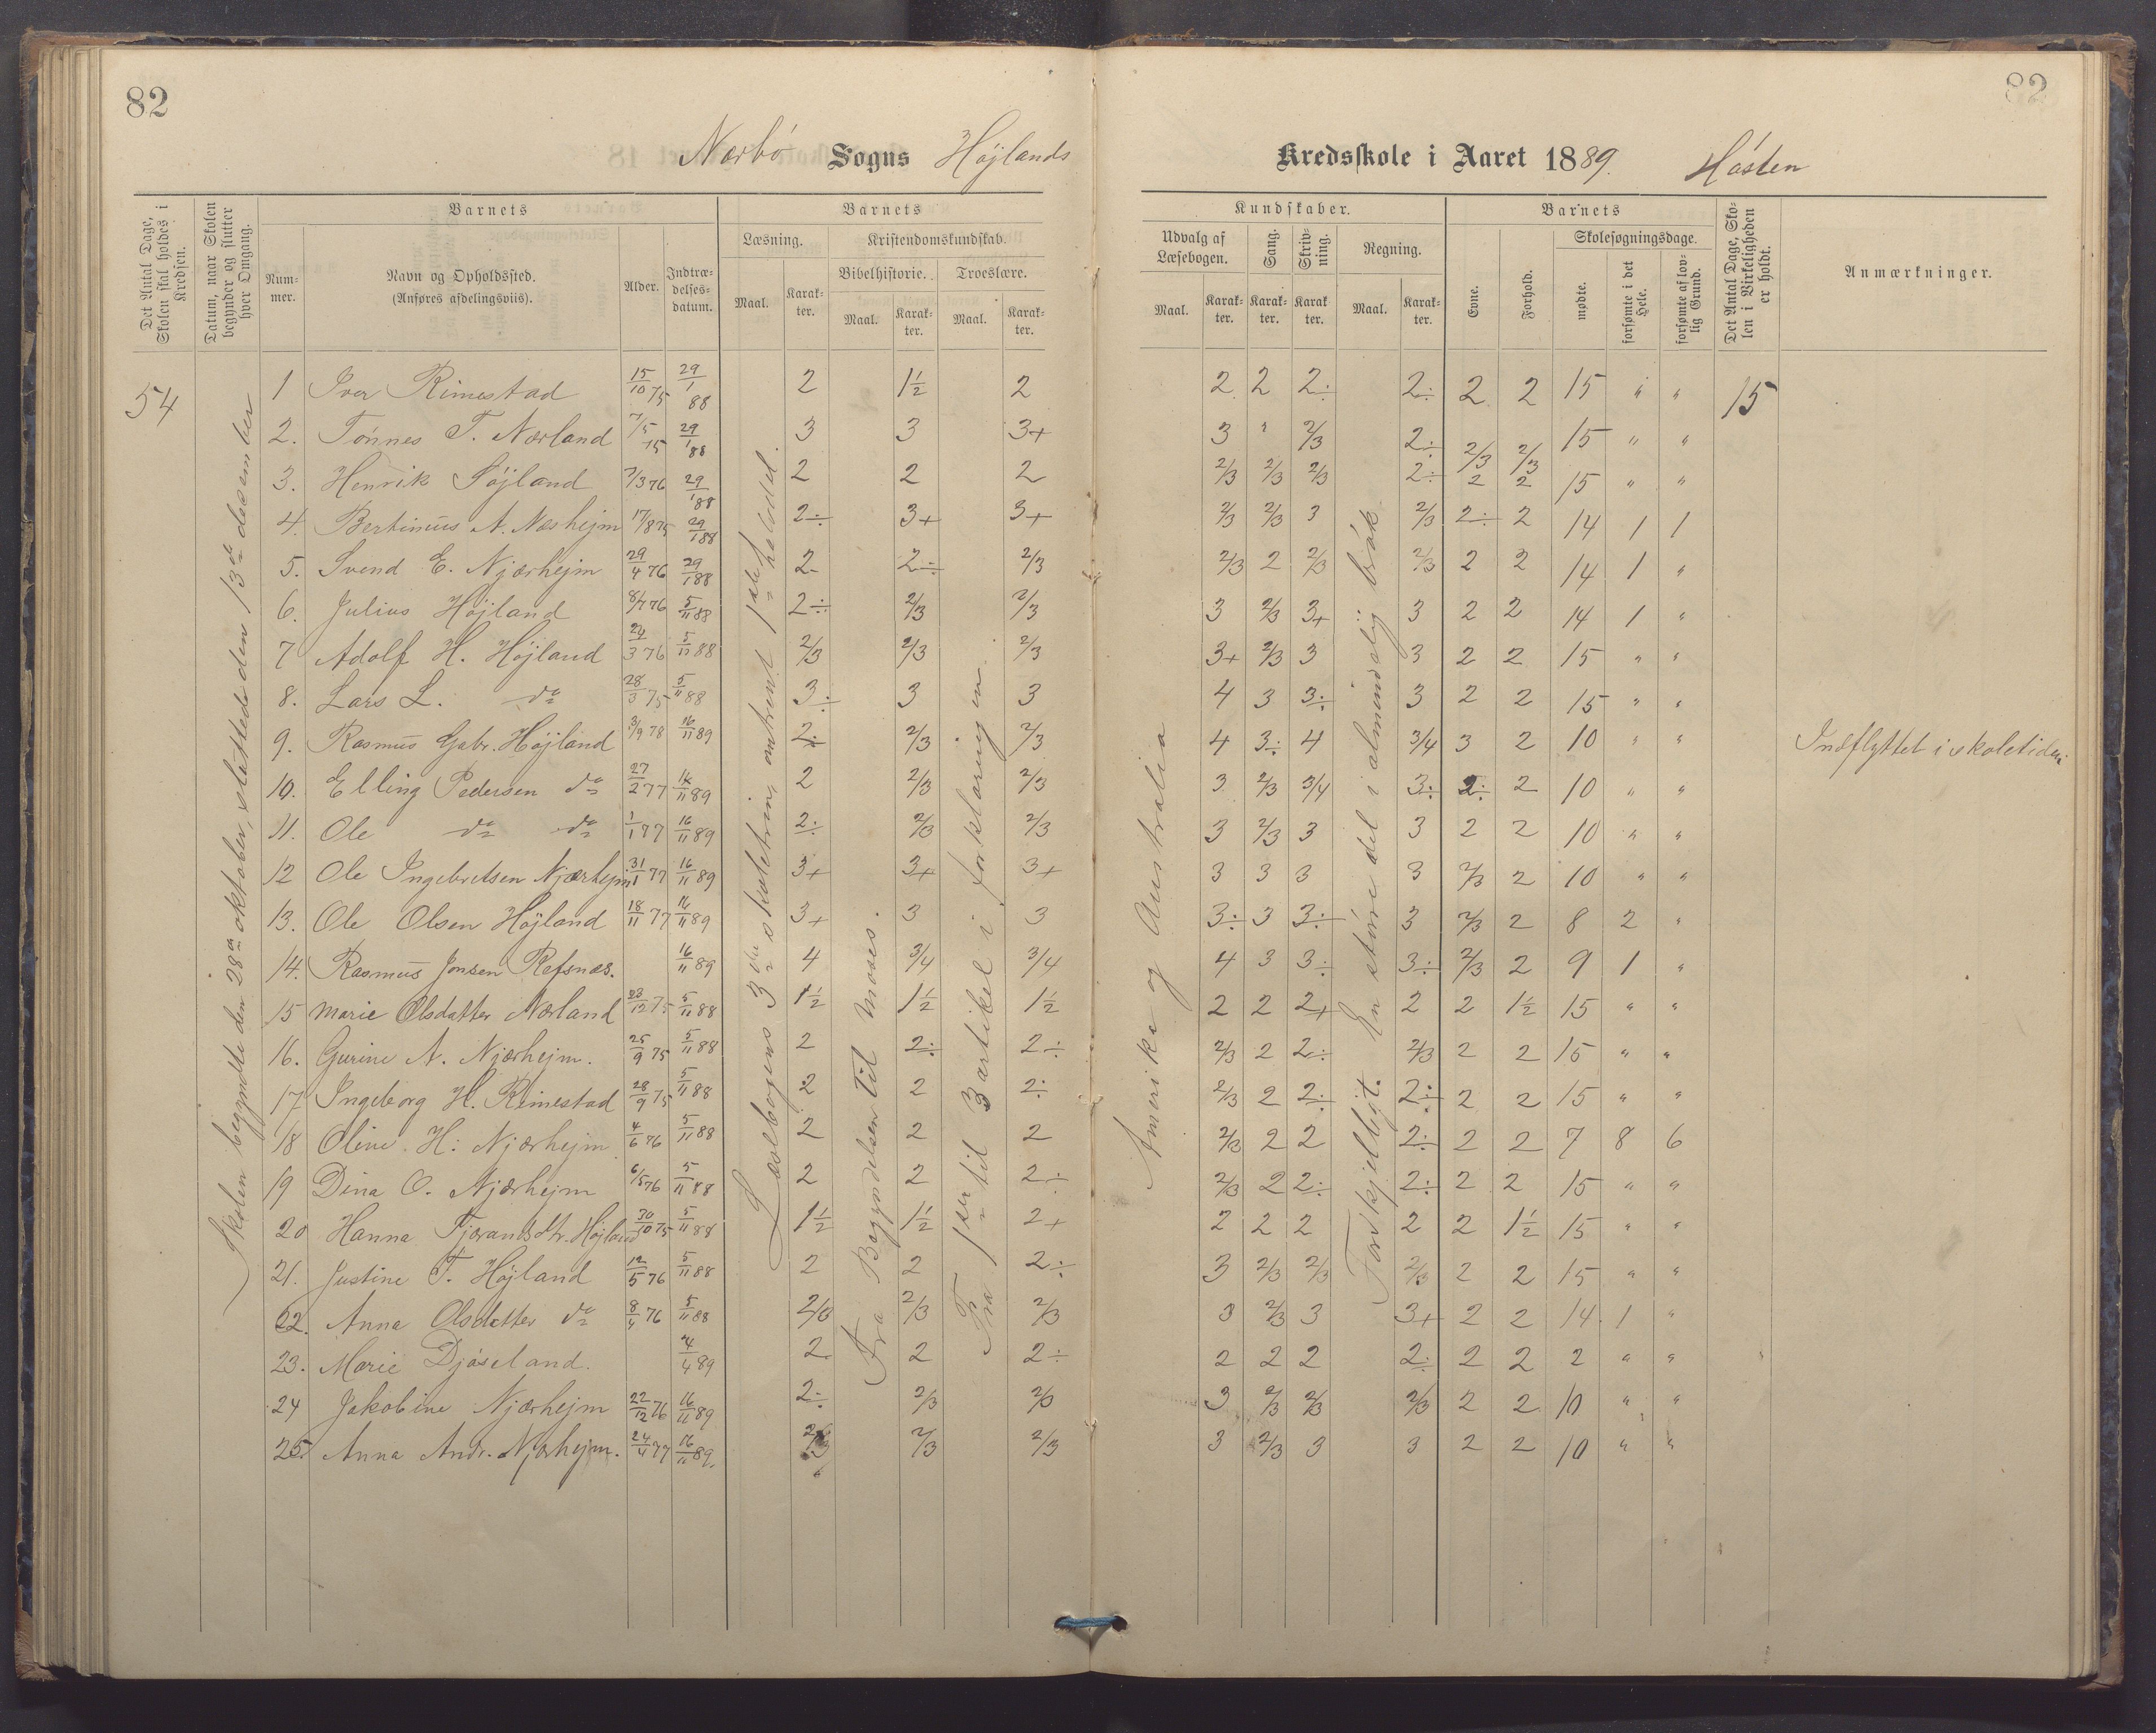 82
82
Nærbø Sogns Højlands Kredsskole i Aaret 1889. Høsten
Det Antal Dage, Skolen skal holdes i Kredsen.
Datum, naar Skolen begynder og slutter hver Omgang.
Barnets
Nummer.
Navn og Opholdssted.
(Anføres afdelingsviis).
Alder.
Indtrædelsesdatum.
Barnets
Læsning.
Maal.
Karakter.
Kristendomskundskab.
Bibelhistorie.
Maal.
Karakter.
Troeslære.
Maal.
Karakter.
Kundskaber.
Udvalg af Læsebogen.
Maal.
Karakter.
Sang.
Karakter.
Skrivning.
Karakter.
Regning.
Maal.
Karakter.
Barnets
Evne.
Forhold.
Skolesøgningsdage.
mødte.
forsømte i det Hele.
forsømte af lovlig Grund.
Det Antal Dage, Skolen i Virkeligheden er holdt.
Anmærkninger.
54
Skolen begyndte den 28de oktober, sluttede den 13de desember
Læsebogens 3die skoletrin, omtrent 1ste halvdel.
Fra Begyndelsen til Moses.
Fra 1ste til 3 artikel i forklaringen.
Amerika og Australia
Forskjelligt. En større del i almindelig brøk.
1 Iver Rimestad 15/10 75 29/1 88 2 1½ 2 2 2 2÷ 2÷ 2 2 15 " " 15
2. Tønnes T. Nærland 7/5 75 29/1 88 3 3 3+ 3 " 2/3 2÷ 2/3 2/3 15 " "
3. Henrik Højland 7/3 76 29/1 88 2 2 2 2/3 2/3 2/3 2÷ 2 2 15 " "
4. Bertinius A. Næshejm 17/8 75 29/1 88 2÷ 3+ 3+ 2/3 2/3 3 2/3 2÷ 2 14 1 1
5. Svend E. Njærhejm 29/4 76 29/1 88 2 2÷ 2/3 2/3 2 2/3 2/3 2 2 14 1 "
6. Julius Højland 8/7 76 5/11 88 2÷ 2/3 2/3 3 2/3 3+ 3 2 2 14 1 "
7 Adolf H. Højland 24/3 76 5/11 88 2/3 2/3 2/3 3+ 2/3 3 3 2 2 15 " "
8. Lars L. do 28/3 75 5/11 88 3÷ 3 3 4 3 3÷ 3 2 2 15 " "
9. Rasmus Gabr. Højland 3/9 78 16/11 89 2÷ 2/3 2/3 4 3÷ 4 3/4 3 2 10 " " Indflyttet i skoletiden
10. Elling Pedersen do 27/2 77 16/11 89 2 2/3 2/3 3 2/3 3/4 3÷ 2÷ 2 10 " "
11. Ole do do 1/1 77 16/11 89 2÷ 2/3 2/3 3 2/3 3 3 2 2 10 " "
12 Ole Ingebretsen Njærhejm 31/1 77 16/11 89 3+ 3+ 3+ 3 3 3 3 2/3 2 10 " "
13. Ole Olsen Højland 18/11 77 16/11 89 3+ 3 3 3÷ 3 3÷ 3 2/3 2 8 2 "
14. Rasmus Jonsen Refsnæs. 16/11 89 4 3/4 3/4 4 3 3÷ 3÷ 2/3 2 9 1 "
15 Marie Olsdatter Nærland 23/12 75 5/11 88 1½ 1½ 1½ 2 2 2+ 2 2 1½ 15 " "
16. Gurine A. Njærhejm. 25/9 75 5/11 88 2 2÷ 2÷ 2/3 2 2÷ 2/3 2 2 15 " "
17 Ingeborg H. Rimestad 28/9 75 5/11 88 2 2 2÷ 2/3 2 2÷ 2÷ 2 2 15 " "
18 Oline H. Njærhejm 4/6 76 5/11 88 2 2 2 2/3 2 2 2÷ 2 2 7 8 6
19 Dina O. Njærhejm 6/5 76 5/11 88 2 2 2÷ 2/3 2 2÷ 2÷ 2 2 15 " "
20 Hanna Tjørandsdtr. Højland 30/10 75 5/11 88 1½ 1½ 2+ 2 2 2 2 2 1½ 15 " "
21. Justine T. Højland 12/5 76 5/11 88 2 2 2÷ 3 2/3 2/3 2/3 2 2 15 " "
22. Anna Olsdatter do 8/4 76 5/11 88 2/3 2/3 2/3 3 2/3 3 3+ 2 2 14 1 "
23. Marie Djøseland. 4/4 89 2 2 2÷ 2 2 2 2÷ 2 2 2 " "
24 Jakobine Njærhejm 22/12 76 16/11 89 2÷ 2/3 2/3 3 2/3 2/3 2/3 2 2 10 " "
25. Anna Andr. Njærhejm. 24/4 77 16/11 89. 2/3 2/3 2/3 3 2/3 3 3 2 2 10 " "